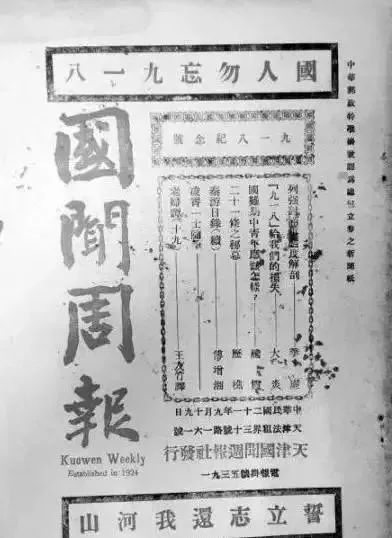 國人勿忘九一八
中華郵政特准掛號認為總包立券之新聞紙
九一八紀念號
列強 態度解剖 李
「九一八」給我們的損失 大炎
國難期中青年應該怎樣？
二十一條之秘幕 歷樵
秦游日錄（續） 傅增湘
凌霄一士隨筆
老婦譚 十九 王 竹譯
國聞周報
Kuowen Weekly
Established in 1924
中華民國二十一年九月十九日
天津法租界三十號路一六一號
天津國聞週報社發行
電報掛號五三九一
誓立志還我河山